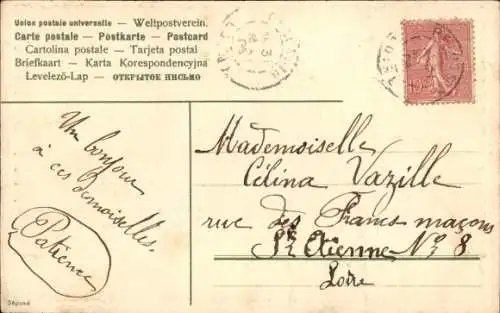 Union postale universelle — Weltpostverein.
Carte postale — Postkarte — Postcard
Cartolina postale — Tarjeta postal
Briefkaart — Karta Korespondencyjna
Levelező-Lap — ОТКРЫТОЕ ПИСЬМО
Un bonjour
à ces demoiselles.
Patience
Mademoiselle
Célina Vazille
rue des Francs maçons
St Etienne No 8
Loire
Déposé